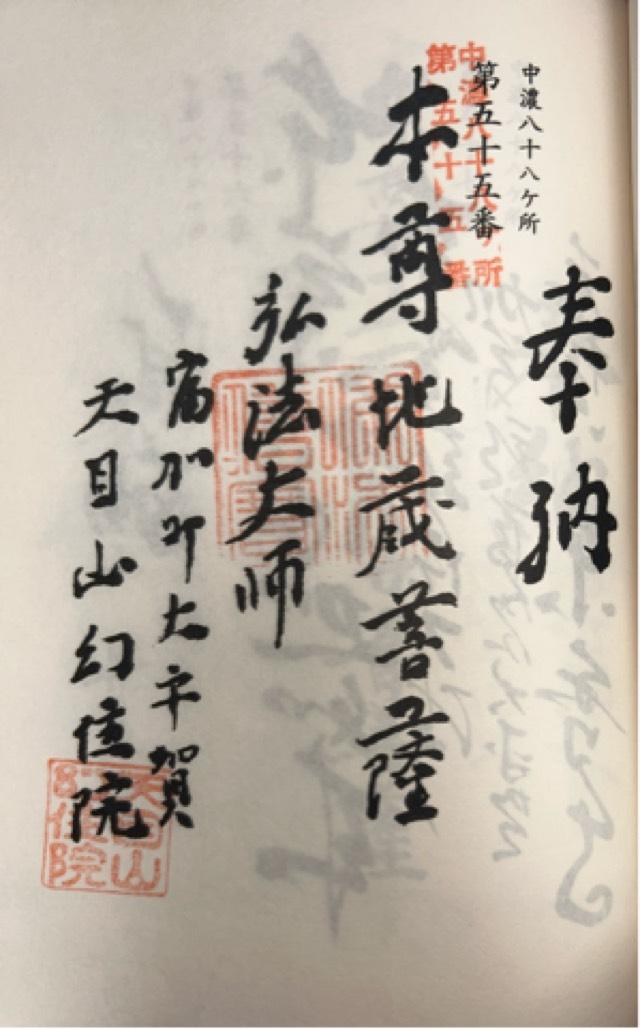 中濃八十八ヶ所
第五十五番
中濃八十八ヶ所
第五十五番
奉納
本尊地蔵菩薩
佛法
僧寶
弘法大師
富加町大平賀
天目山幻住院
天目山
幻住院